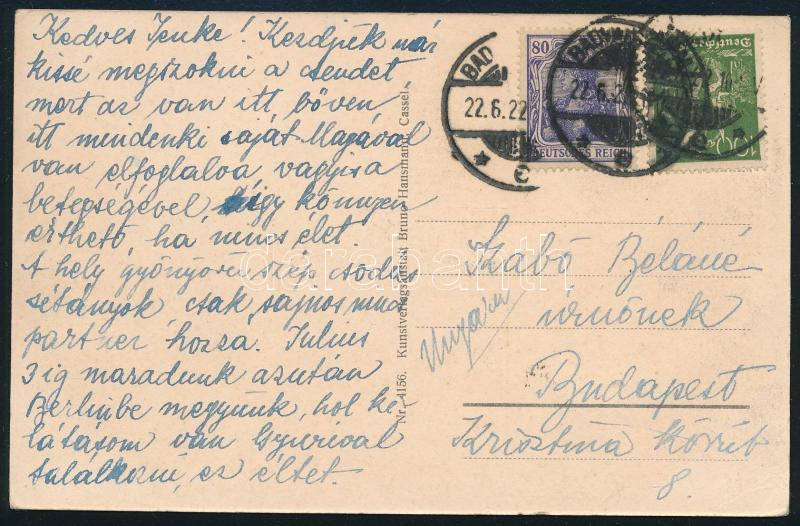 Kedves Jenke! Kezdjük már
kissé megszokni a csendet
mert az van itt bőven
itt mindenki saját Magával
van elfoglalva, vagyis a
betegségével, így könnyen
érthető, ha nincs élet.
A hely gyönyörű szép csodás
sétányok csak sajnos nincs
partner hozzá. Julius
3 ig maradunk azután
Berlinbe megyünk, hol ki-
látásom van Gyurival
találkozni, ez éltet.
Nr. 4156. Kunstverlagsanstalt Bruno Hansmann, Cassel.
BAD
22.6.22
80
DEUTSCHES REICH
Szabó Béláné
úrnőnek
Ungarn
Budapest
Krisztina körút
8.
darabanth